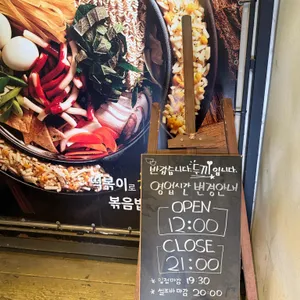 떡볶이로
볶음밥
반갑습니다 두끼입니다.
영업시간 변경안내
OPEN
12:00
CLOSE
21:00
* 입장마감 19:30
* 셀프바마감 20:00